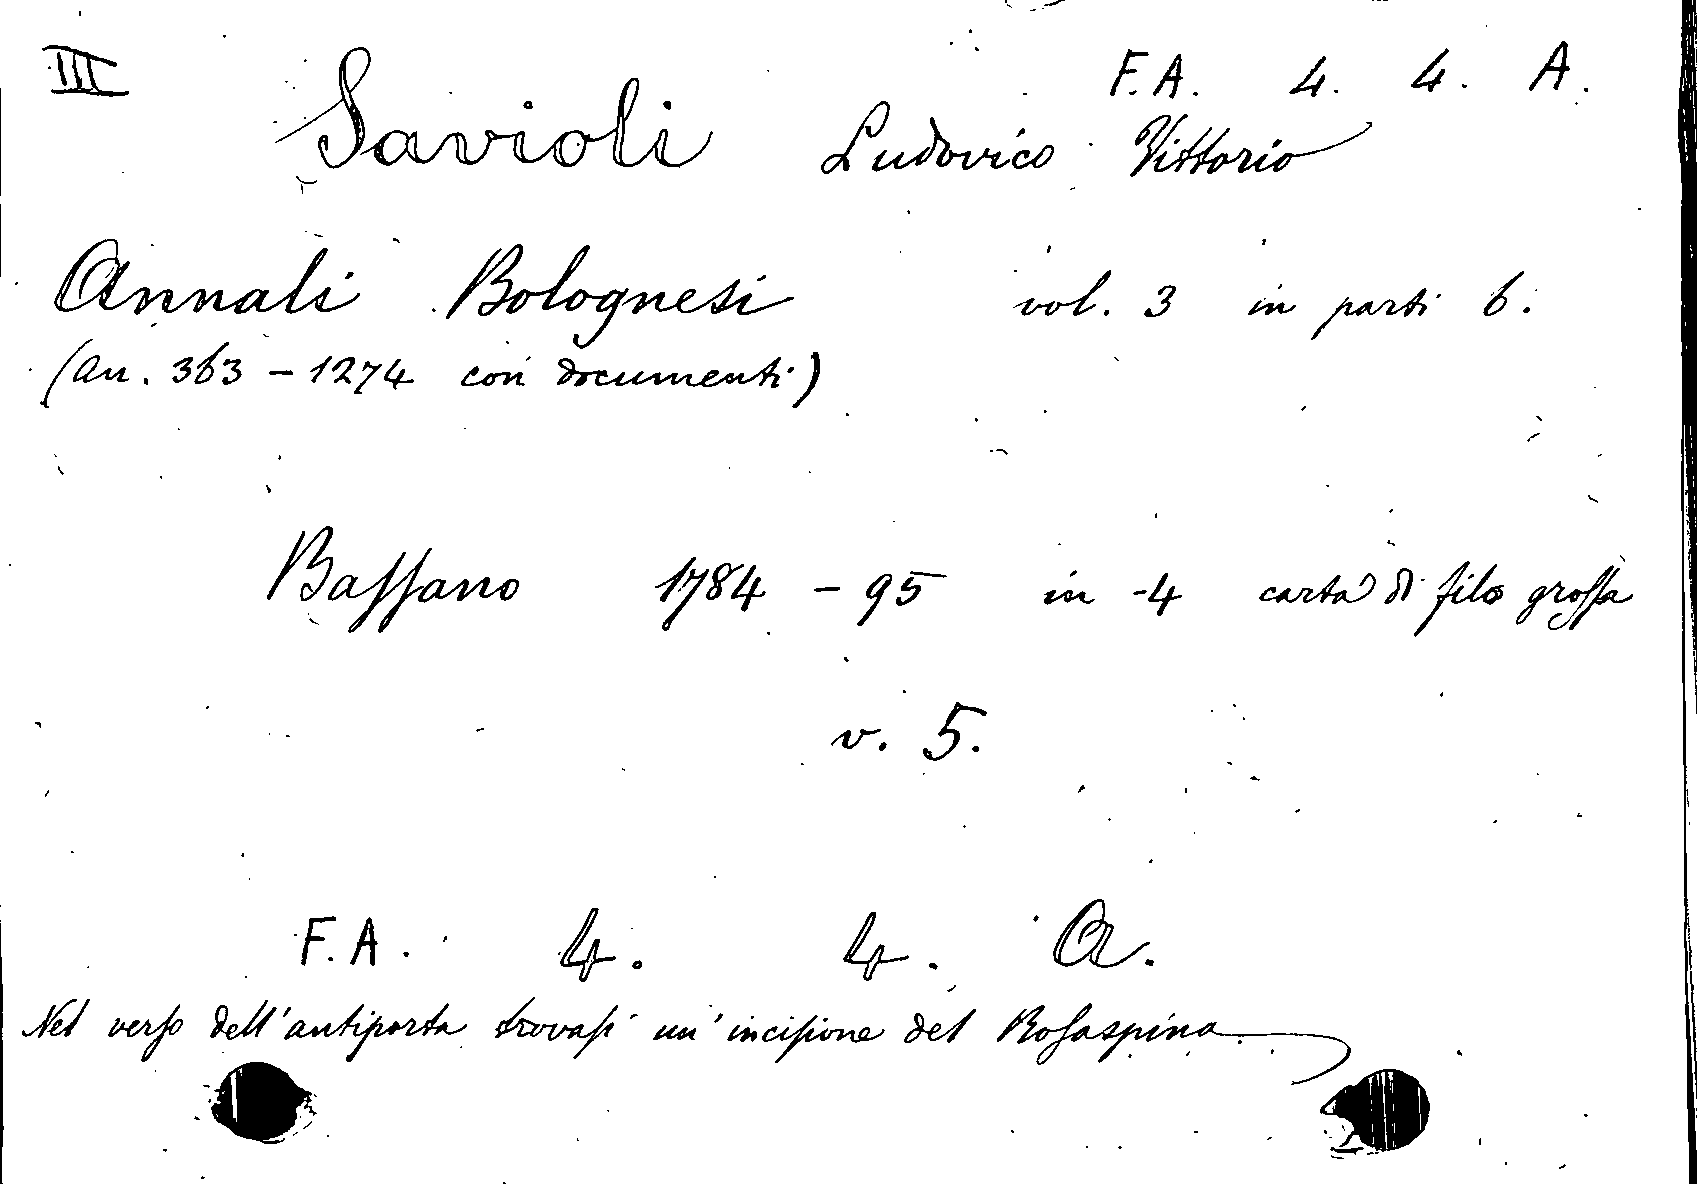 III
F.A. 4. 4. A.
Savioli Ludovico Vittorio
Annali Bolognesi vol. 3 in parti 6.
(an. 363 – 1274 con documenti)
Baſſano 1784 – 95 in-4 carta di filo groſſa
v. 5.
F.A. 4. 4. A.
Nel verſo dell'antiporta trovaſi un'inciſione del Roſaspina